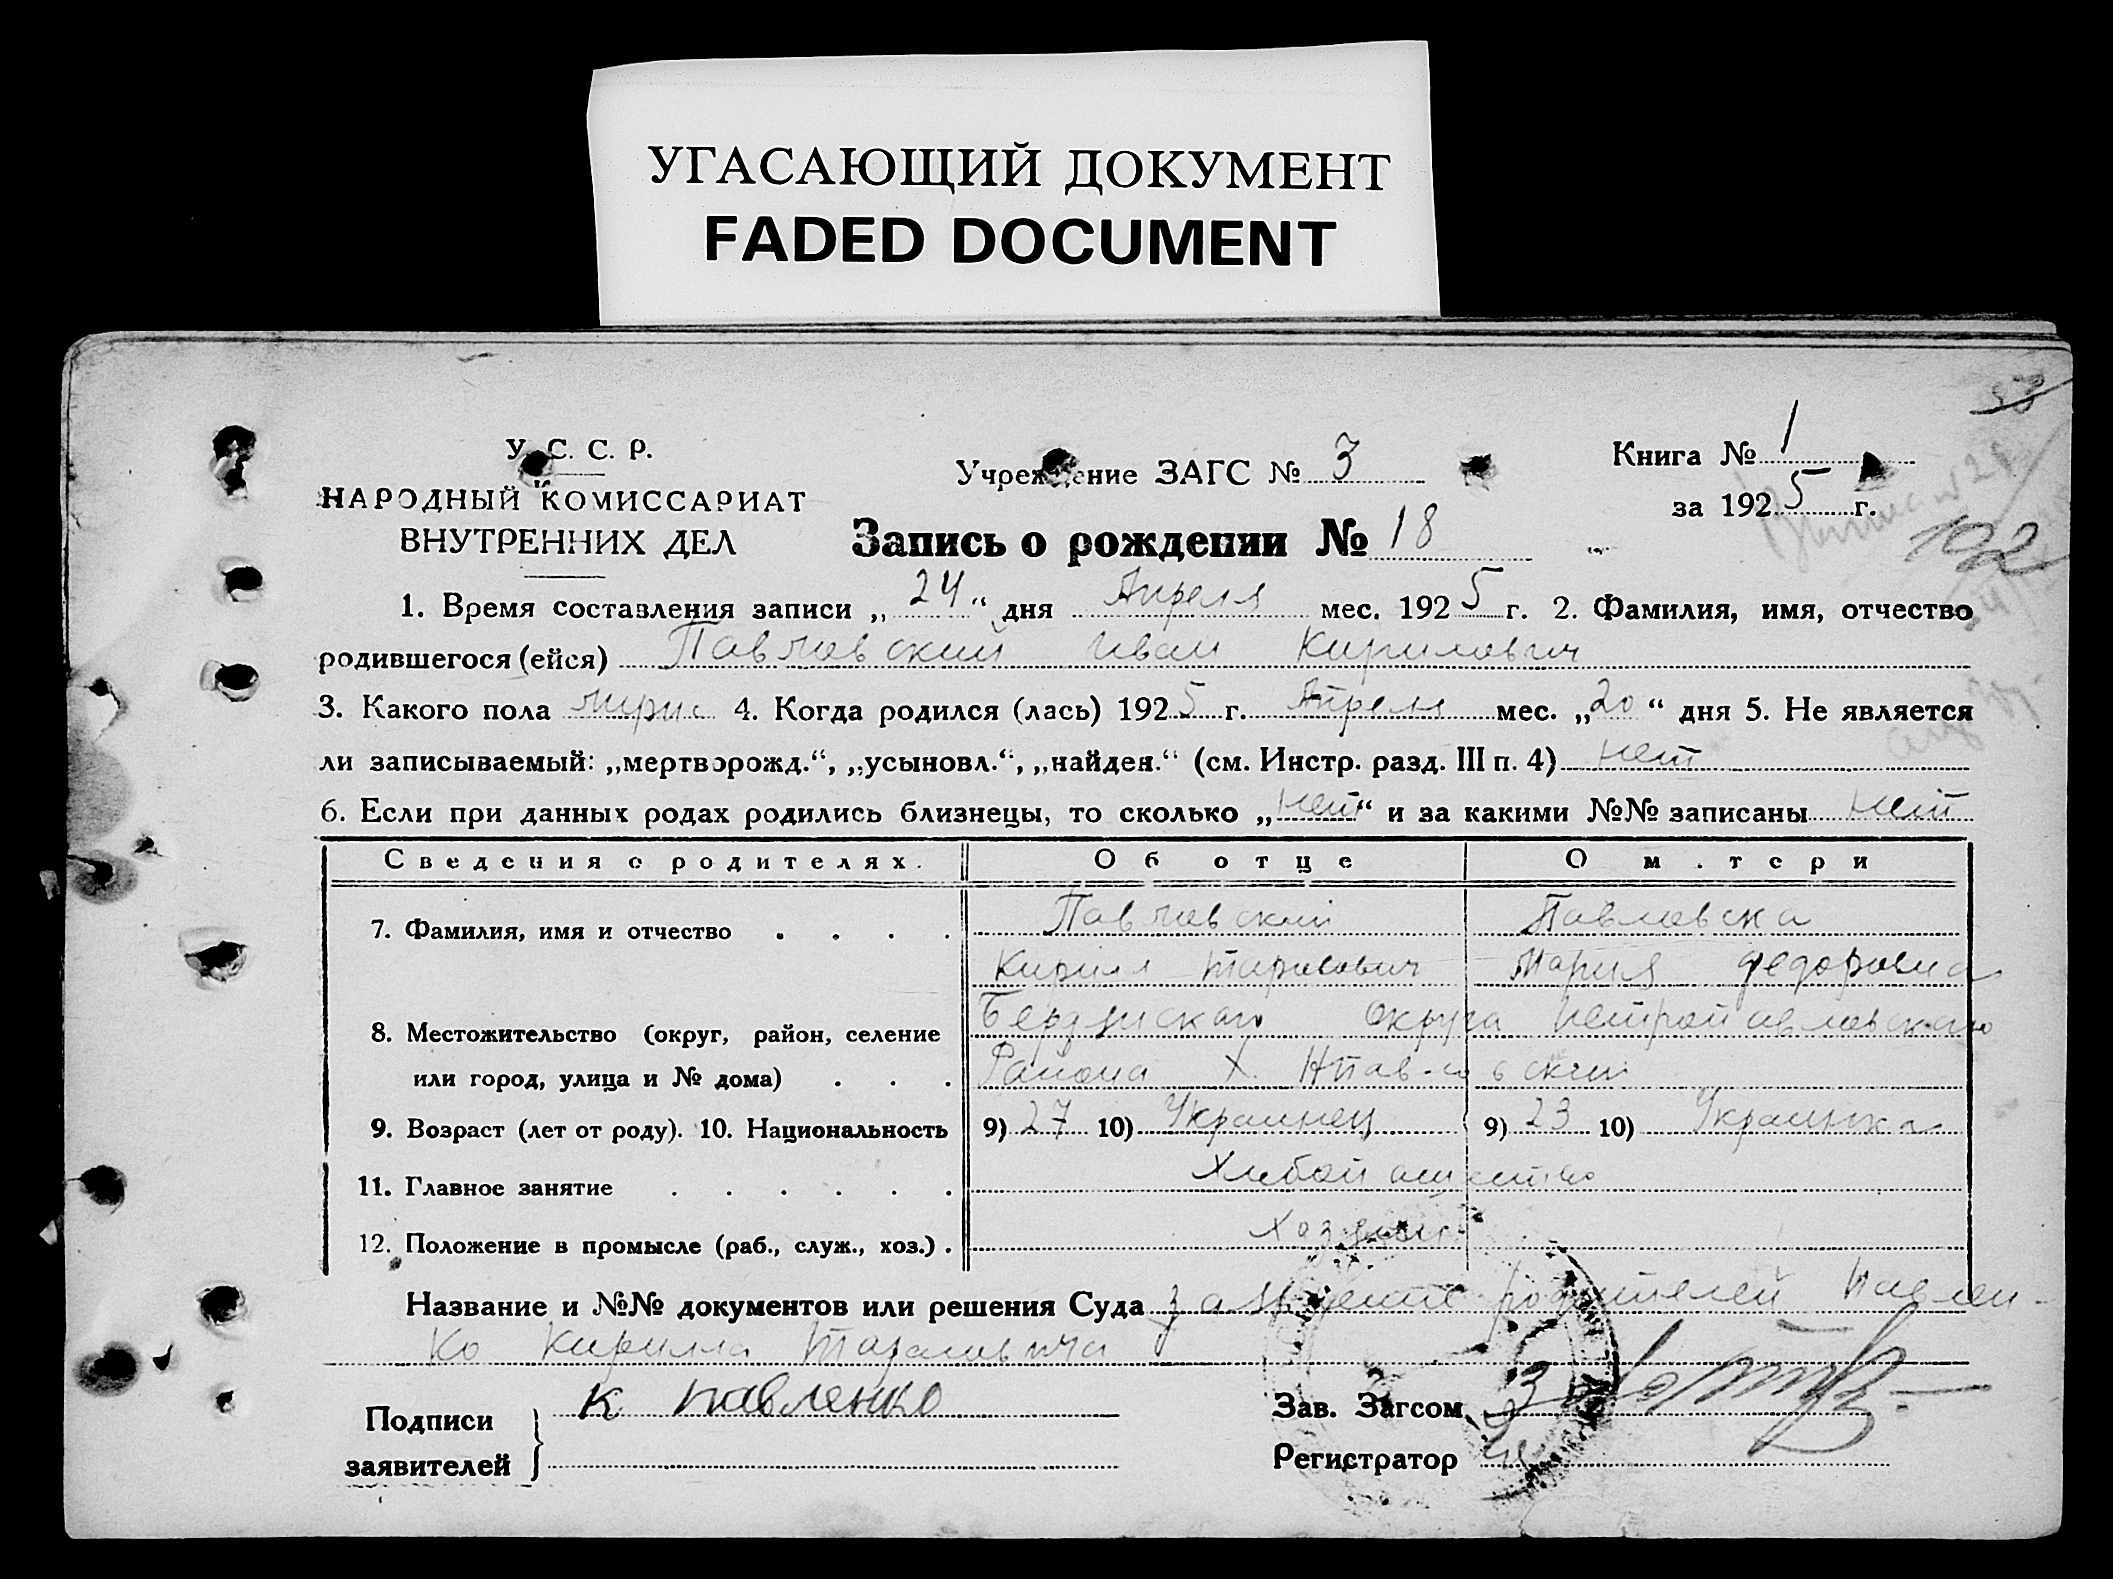 УГАСАЮЩИЙ ДОКУМЕНТ
FADED DOCUMENT
У. С. С. Р.
НАРОДНЫЙ КОМИССАРИАТ
ВНУТРЕННИХ ДЕЛ
Учреждение ЗАГС № 3
Книга № 1
за 1925 г.
102
Запись о рождении № 18
1. Время составления записи „24“ дня Апреля мес. 1925 г. 2. Фамилия, имя, отчество
родившегося (ейся) Павловский Иван Кирилович
3. Какого пола 4. Когда родился (лась) 1925 г. Апреля мес. „20“ дня 5. Не является
ли записываемый: „мертворожд.“, „усыновл.“, „найден.“ (см. Инстр. разд. III п. 4) нет
6. Если при данных родах родились близнецы, то сколько „нет“ и за какими №№ записаны нет
Сведения о родителях. Об отце О м.тери
7. Фамилия, имя и отчество . . . . Павловский Павловска
Кирилл Тарасович Мария Федоровна
8. Местожительство (округ, район, селение Бердянского округа Петропавловского
или город, улица и № дома) . . . Района Х.
9. Возраст (лет от роду). 10. Национальность 9) 27 10) Украинец 9) 23 10) Украинка
11. Главное занятие . . . . . . Хлебопашество
12. Положение в промысле (раб., служ., хоз.) . Хозяин
Название и №№ документов или решения Суда родителей Павлен-
ко Кирилла Тарасовича
Подписи заявителей К Павленко
Зав. Загсом
Регистратор